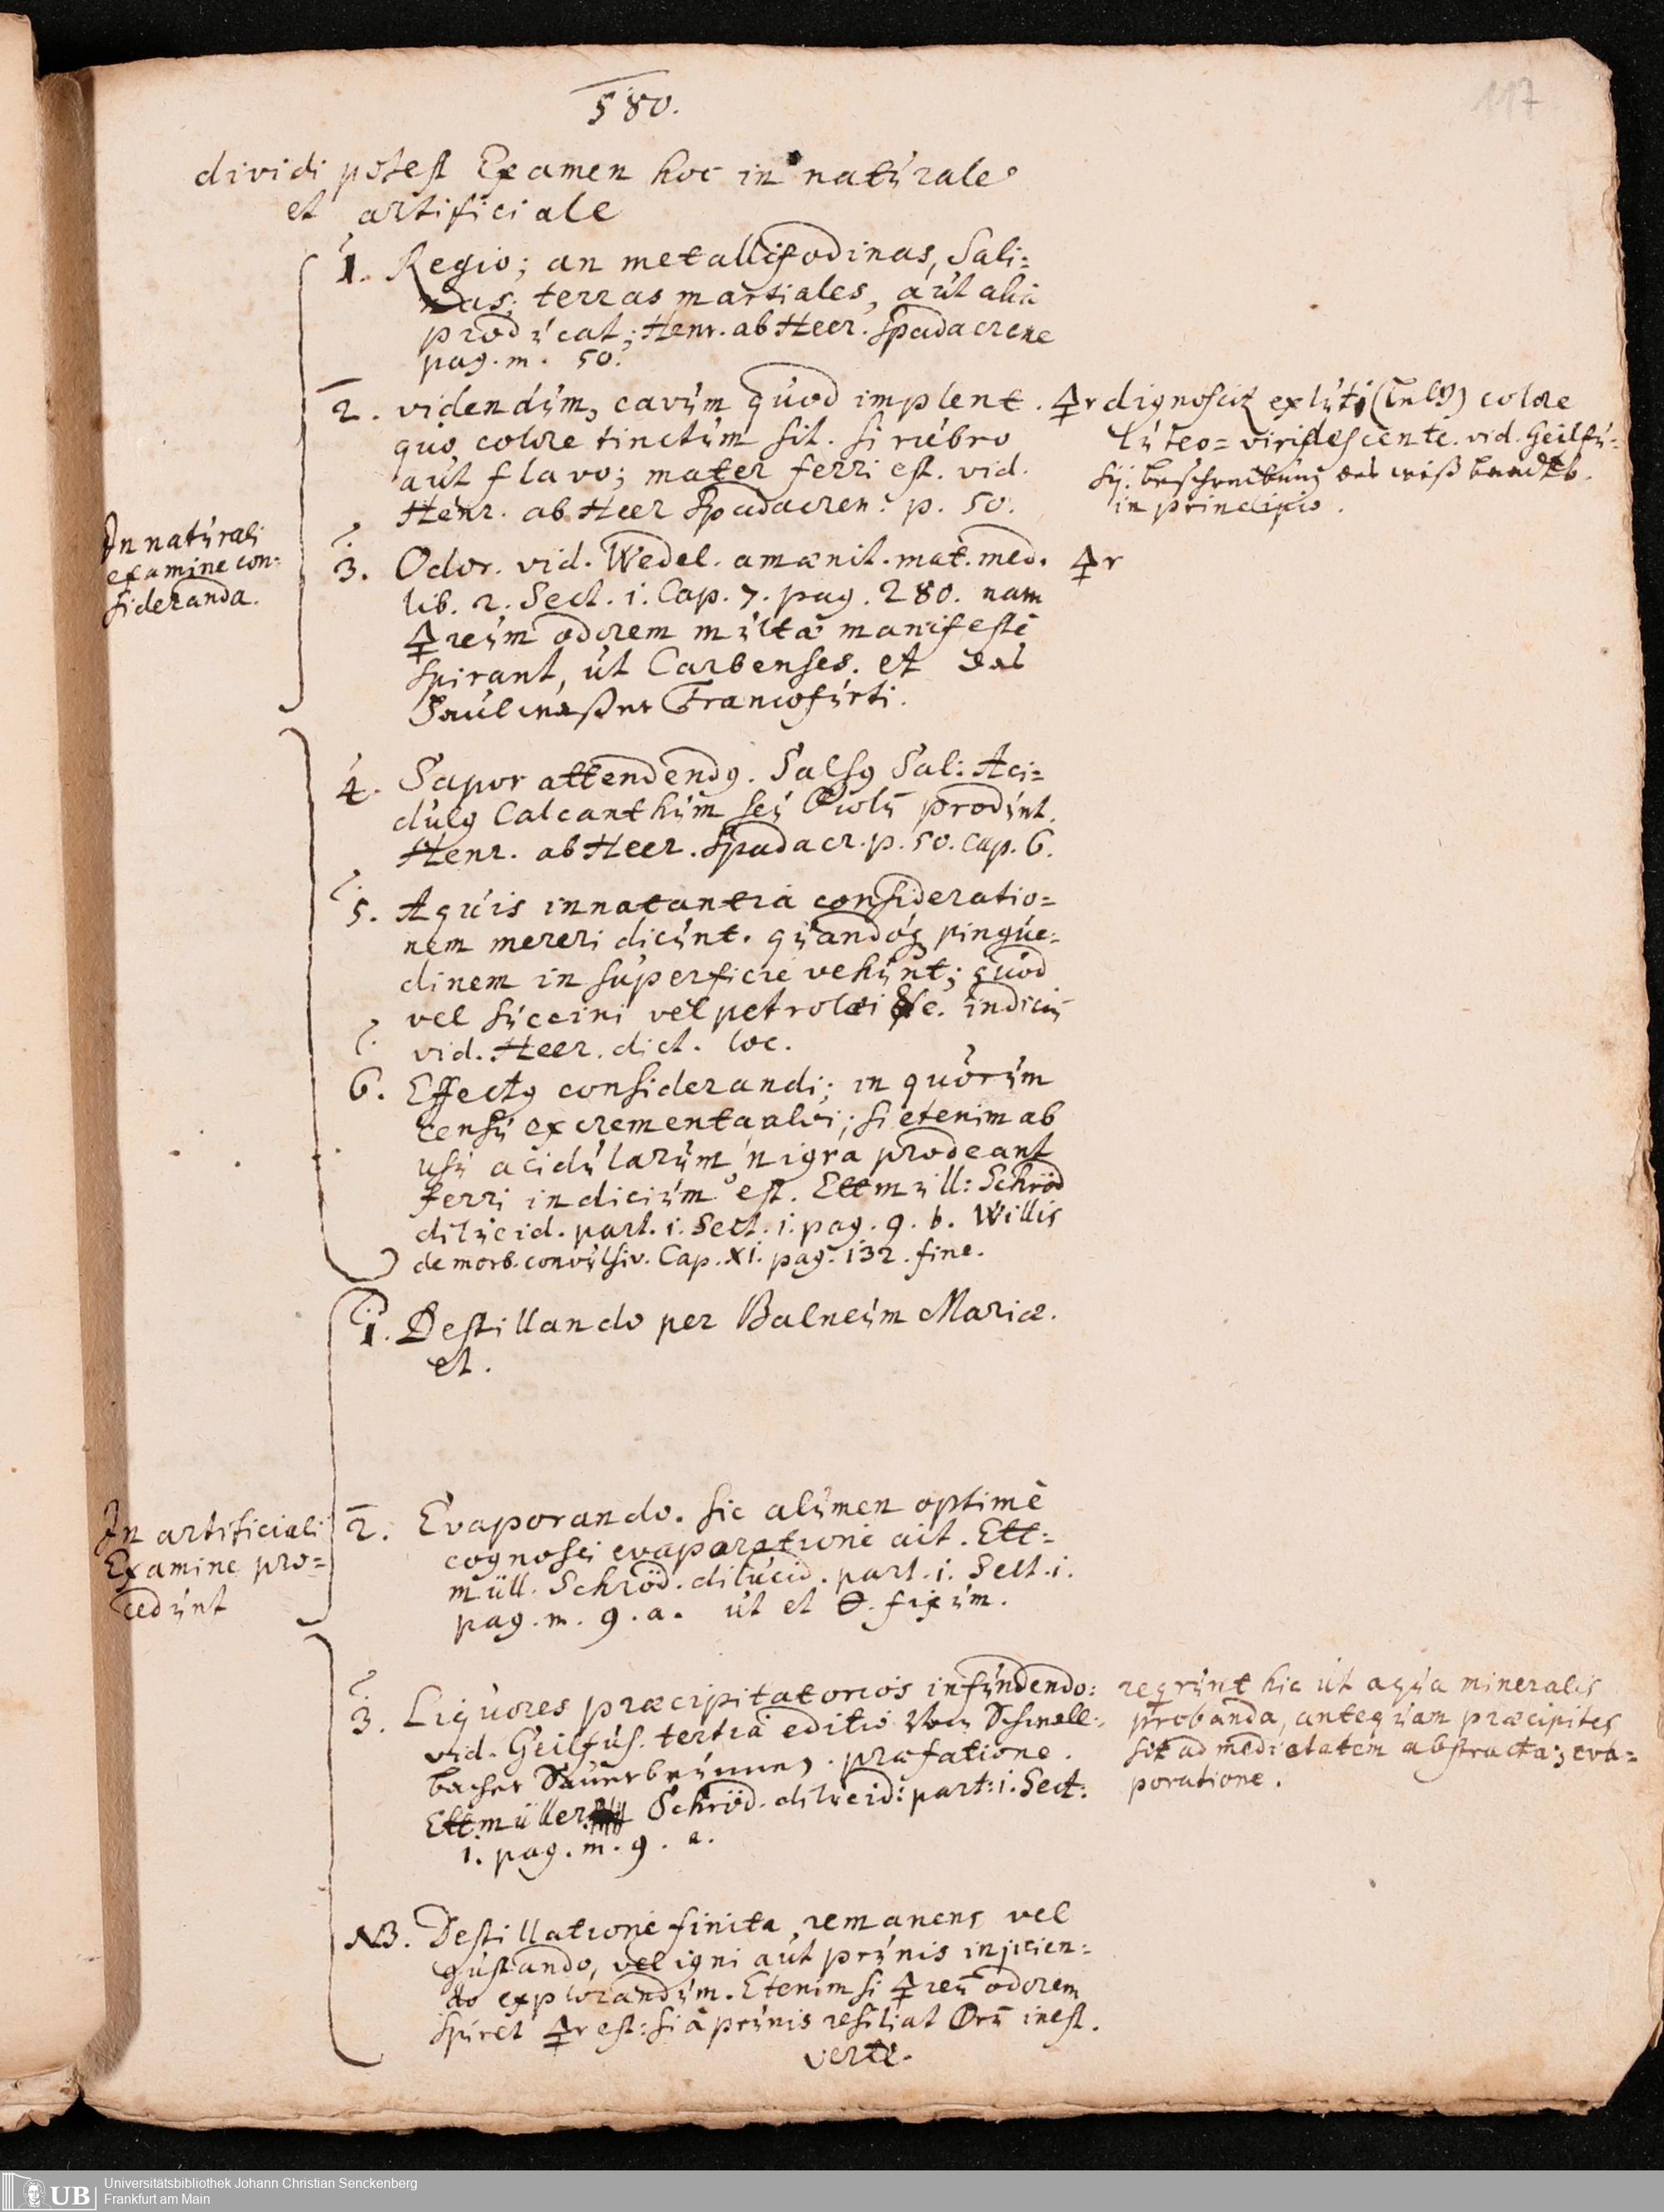 580.
117
dividi potest Examen hoc in naturale
et artificiale
1. Regio; an metallifodinas, Sali=
nas, terras martiales, aut alia
producat; Henr. ab Heer. Spadacrene
pag. m. 50.
2. videndum, cavum quod implent.
quo colore tinctum sit. si rubro
aut flavo; mater ferri est. vid.
Henr. ab Heer Spadacren. p. 50.
🜍r dignoscit ex luti colore
luteo=viridescente. vid. Geilfu=
sij. beschreibung des wißbandts.
in principio.
In naturali
examine con=
sideranda.
3. Odor. vid. Wedel. amænit. mat. med.
lib. 2. Sect. 1. Cap. 7. pag. 280. nam
🜍reum odorem multa manifeste
spirant, ut Carbenses. et das
Faulwaßer Francofurti.
🜍r
4. Sapor attendendꝰ. Salsꝰ Sal: Aci=
dulꝰ Calcanthum seu produnt.
Henr. ab Heer. Spadacr. p. 50. cap. 6.
5. Aquis innatantia consideratio=
nem mereri dicunt. quandoqꝫ pingue=
dinem in superficie vehunt; quod
vel succini vel petrolæi &c. indiciū
vid. Heer. dict. loc.
6. Effectꝰ considerandi; in quorum
censu excrementa alvi; si etenim ab
usu acidularum nigra prodeant
ferri indicium est. Ettmüll: Schröd
dilucid. part. 1. Sect. 1. pag. 9. b. Willis
de morb. convulsiv. Cap. XI. pag. 132. fine.
1. Destillando per Balneum Mariæ.
et.
In artificiali
Examine pro=
cedunt
2. Evaporando. sic alumen optimè
cognosci evaporatione ait. Ett=
müll. Schröd. dilucid. part. 1. Sect. 1.
pag. m. 9. a. ut et 🜔. fixum.
3. Liquores præcipitatorios infundendo:
vid. Geilfus. tertia editio Von Schwall=
bacher Sauerbrunnen. præfatione.
Ettmüller Schröd. dilucid: part: 1. Sect:
1. pag. m. 9. a.
reqrunt hic ut aqua mineralis
probanda, antequam præcipites
sit ad medietatem abstracta; eva=
poratione.
NB. Destillatione finita, remanens vel
gustando, vel igni aut prunis injicien=
do explorandum. Etenim si 🜍reū odorem
spiret 🜍r est: si à prunis resiliat 🜕rū inest.
verte.
UB
Universitätsbibliothek Johann Christian Senckenberg
Frankfurt am Main